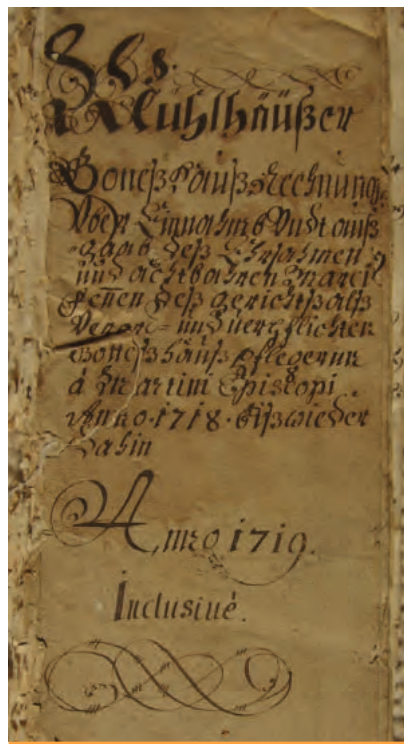 Mühlhäußer
Gottß Hauß Rechnung
Vber Einnahmb Vndt auß
gaab deß Ehrsahmen
und achtbahren Marci
deß gerichtß alß
und verpflichten
Gottßhauß Pflegerun
à Martini Episcopi
Anno 1718. bißwieder
dahin
Anno 1719.
Inclusiué.